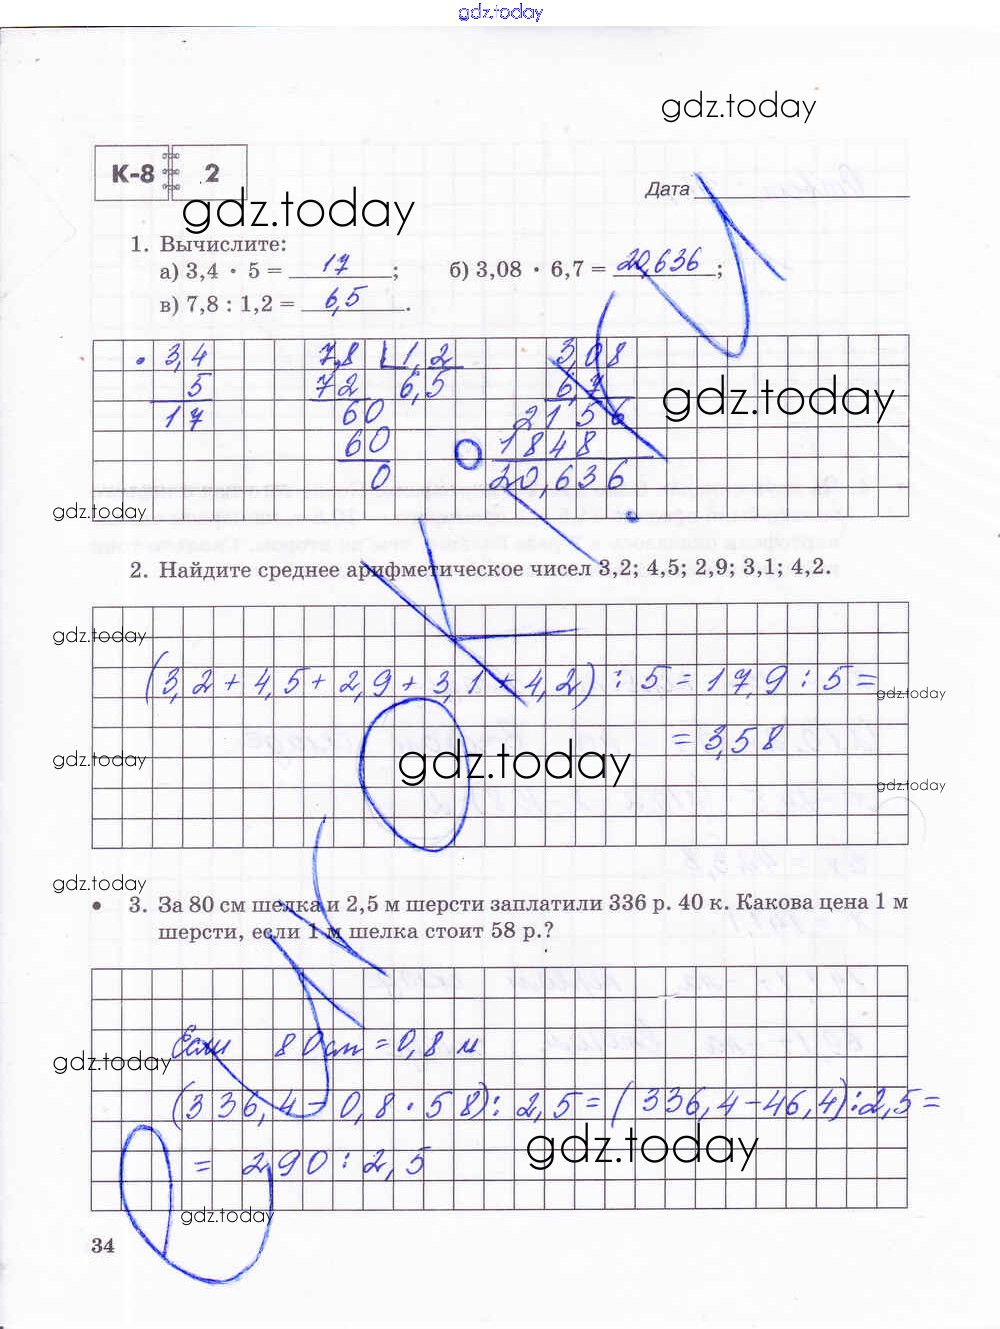 gdz.today
gdz.today
К-8 2
Дата
gdz.today
1. Вычислите:
а) 3,4 · 5 = 17 ; б) 3,08 · 6,7 = 20,636 ;
в) 7,8 : 1,2 = 6,5 .
· 3,4 7,8 1,2 3,08
5 72 6,5 6,7
17 60 2156
60 1848
0 20,636
gdz.today
gdz.today
2. Найдите среднее арифметическое чисел 3,2; 4,5; 2,9; 3,1; 4,2.
gdz.today
(3,2 + 4,5 + 2,9 + 3,1 + 4,2) : 5 = 17,9 : 5 =
gdz.today
= 3,58
gdz.today
gdz.today
gdz.today
gdz.today
• 3. За 80 см шелка и 2,5 м шерсти заплатили 336 р. 40 к. Какова цена 1 м
шерсти, если 1 м шелка стоит 58 р.?
Если 80 см = 0,8 м
gdz.today
(336,4 - 0,8 · 58) : 2,5 = (336,4 - 46,4) : 2,5 =
gdz.today
= 290 : 2,5
gdz.today
34